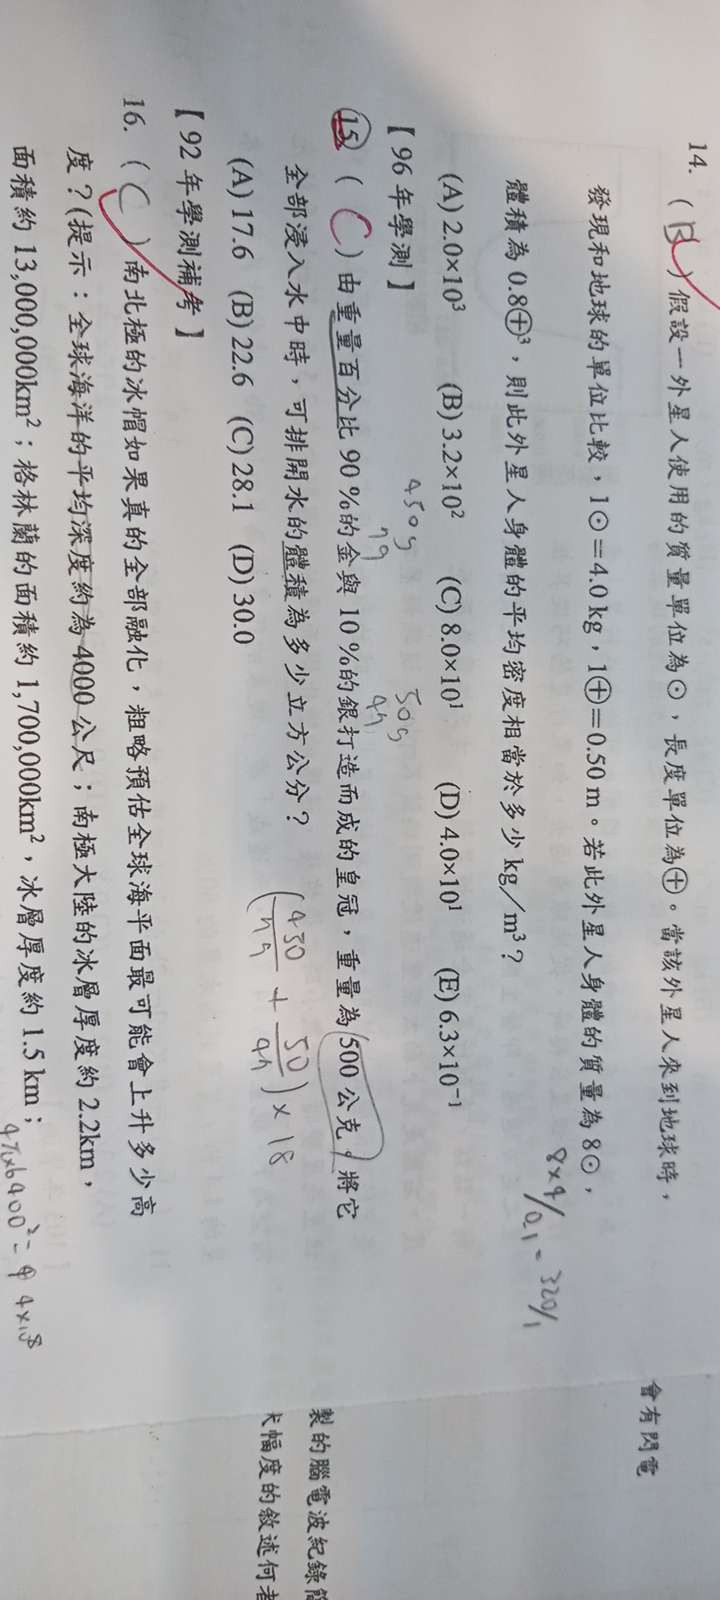 14. (B) 假設一外星人使用的質量單位為⊙，長度單位為⊕。當該外星人來到地球時，
發現和地球的單位比較，1⊙＝4.0 kg，1⊕＝0.50 m。若此外星人身體的質量為 8⊙，
體積為 0.8⊕³，則此外星人身體的平均密度相當於多少 kg／m³？
8×4/0.1 = 320/1
(A) 2.0×10³ (B) 3.2×10² (C) 8.0×10¹ (D) 4.0×10¹ (E) 6.3×10⁻¹
【96 年學測】
450g 50g
15. (C) 由重量百分比 90 %的金與 10 %的銀打造而成的皇冠，重量為 500 公克。將它
全部浸入水中時，可排開水的體積為多少立方公分？
(A) 17.6 (B) 22.6 (C) 28.1 (D) 30.0
【92 年學測補考】
16. (C) 南北極的冰帽如果真的全部融化，粗略預估全球海平面最可能會上升多少高
度？(提示：全球海洋的平均深度約為 4000 公尺；南極大陸的冰層厚度約 2.2km，
面積約 13,000,000km²；格林蘭的面積約 1,700,000km²，冰層厚度約 1.5 km；
會有閃電
製的腦電波紀錄
幅度的敘述何者